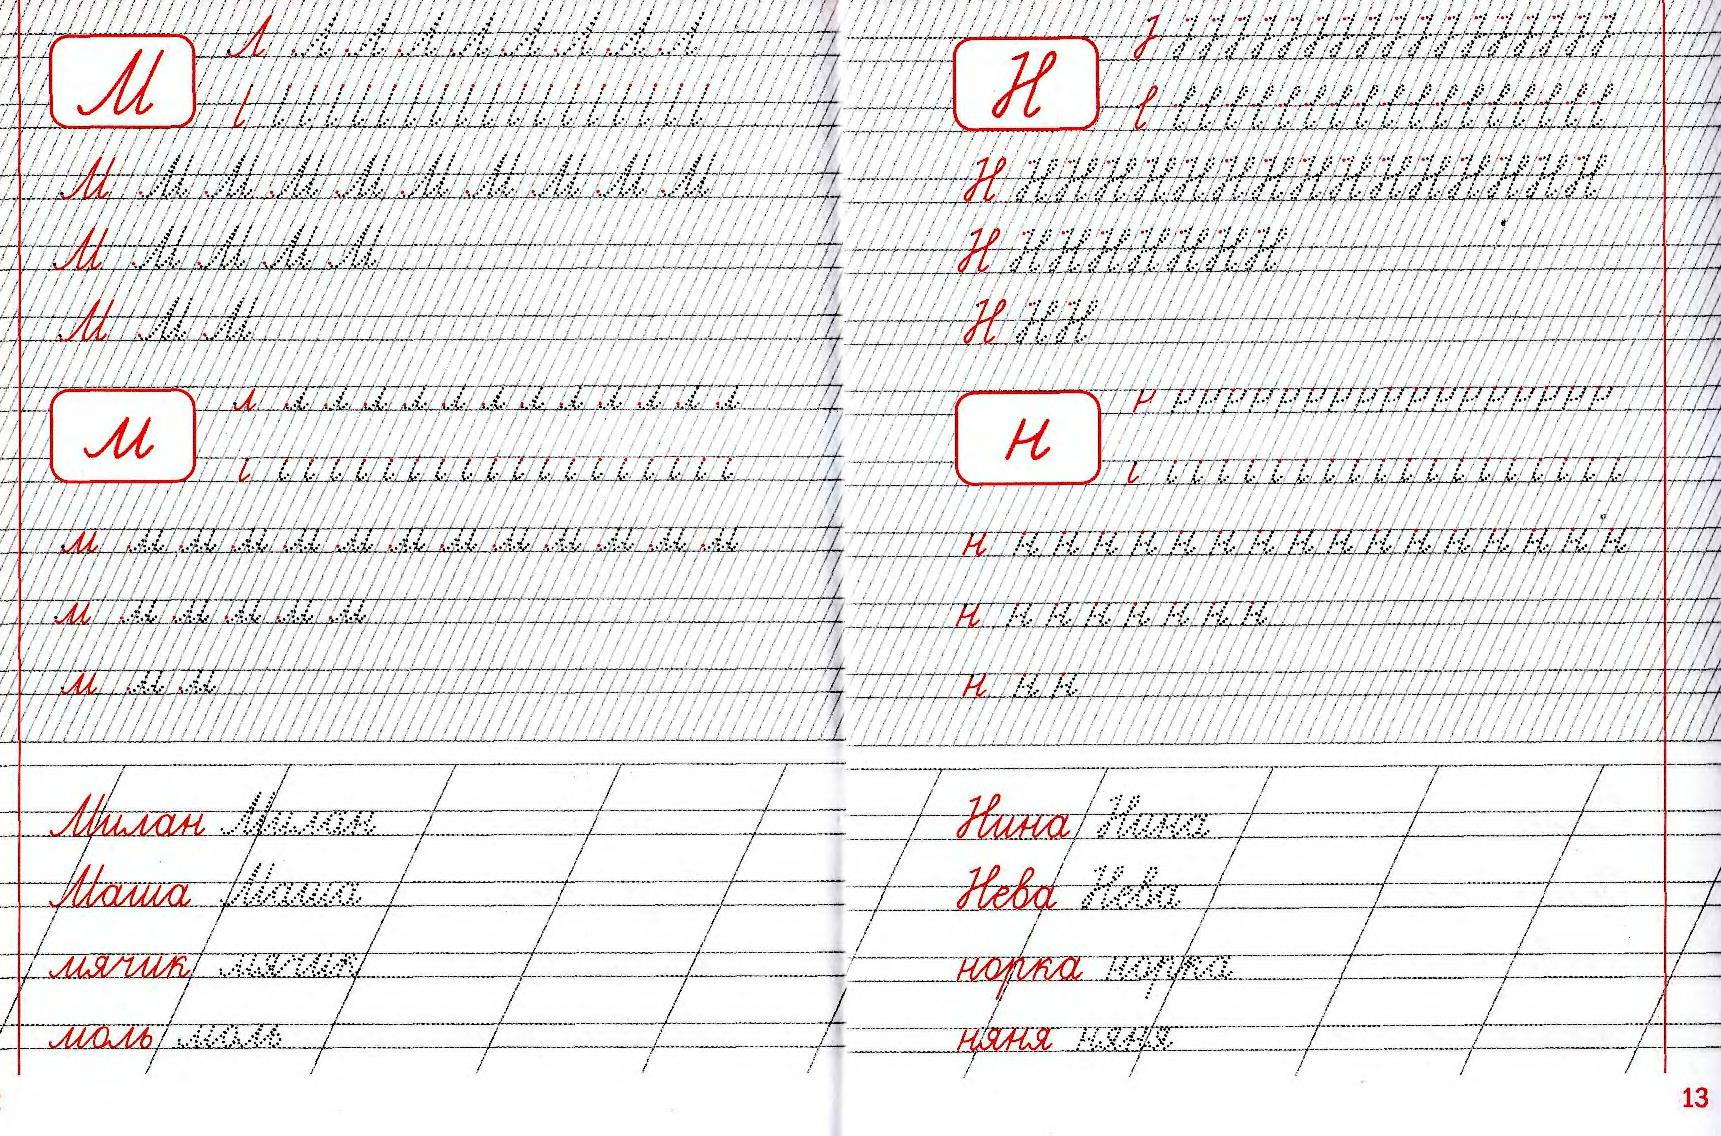 М
М М М М М М М М М М
М М М М М
М М М
м
м м м м м м м м м м м м м
м м м м м м
м м м
Милан Милан
Маша Маша
мячик мячик
моль моль
Н
Н Н Н Н Н Н Н Н Н Н Н Н Н Н Н Н
Н Н Н Н Н Н Н Н
Н Н Н
н
н н н н н н н н н н н н н н н н н
н н н н н н н н
н н н
Нина Нина
Нева Нева
норка норка
няня няня
13